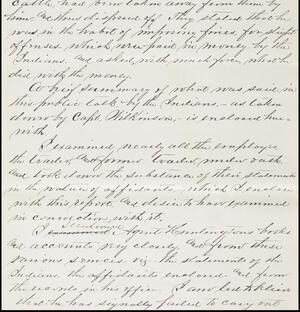 Cattle had been taken away from them by
him and thus disposed of. They stated that he
was in the habit of imposing fines, for slight
offenses, which were paid in money by the
Indians, and asked, with much force, what he
did with the money.
A brief summary of what was said in
this public talk by the Indians, as taken
down by Capt. Wilkinson, is enclosed here-
with.
I examined nearly all the employes
the trader, and former trader, under oath
and took down the substance of their statements
in the nature of affidavits, which I enclose
with this report and desire to have examined
in connection with it.
I examined Agent books
and accounts very closely, and from these
various sources, viz: the statements of the
Indians, the affidavits enclosed and from
the records in his office, I am led to believe
that he has signally failed to carry out